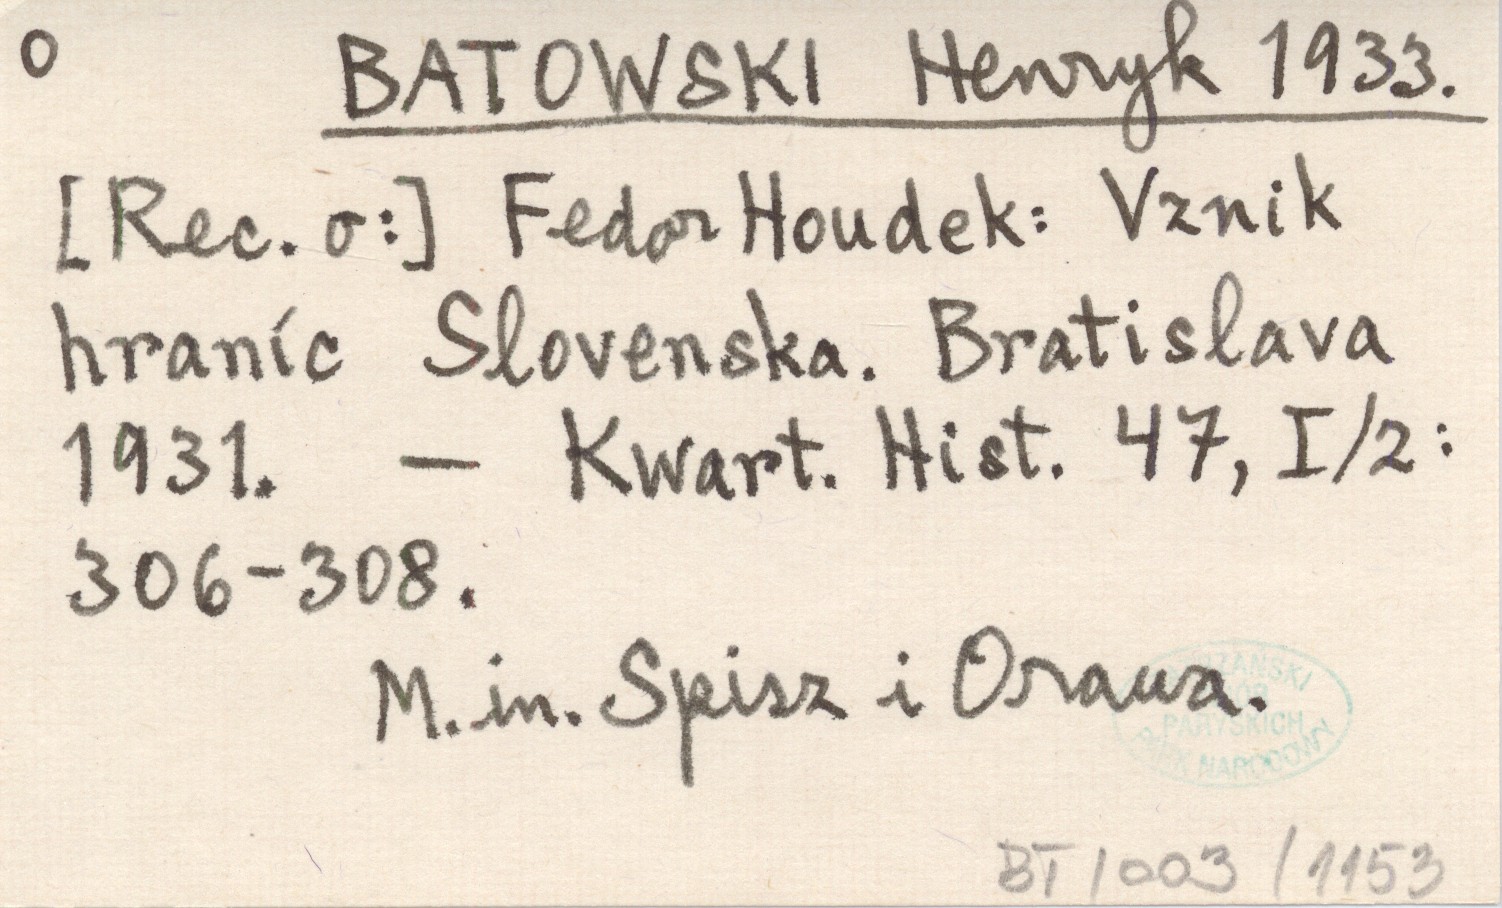 o BATOWSKI Henryk 1933.
[Rec. o:] Fedor Houdek: Vznik
hraníc Slovenska. Bratislava
1931. — Kwart. Hist. 47, I/2:
306-308.
M. in. Spisz i Orawa.
PARYSKICH
PARK NARODOWY
BT/003/1153